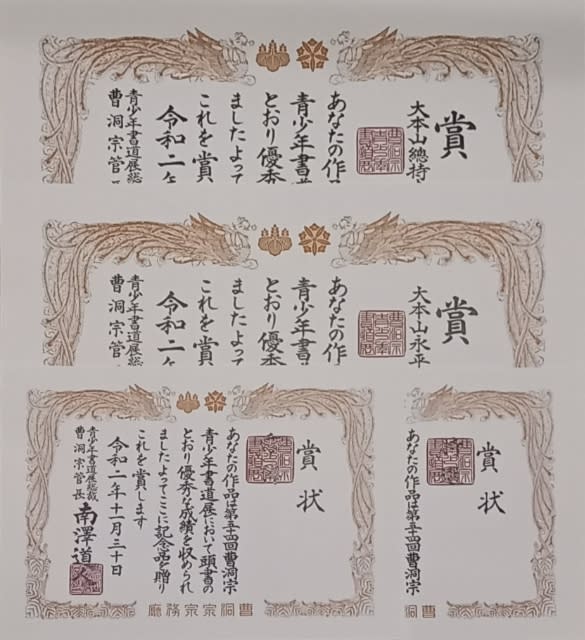 賞
大本山總持
あなたの作
青少年書
とおり優秀
ましたよって
これを賞
令和二
青少年書道展総
曹洞宗管
賞
大本山永平
あなたの作
青少年書
とおり優秀
ましたよって
これを賞
令和二
青少年書道展総
曹洞宗管
賞状
あなたの作品は第五十四回曹洞宗
青少年書道展において頭書の
とおり優秀な成績を収められ
ましたよってここに記念品を贈り
これを賞します
令和二年十一月三十日
青少年書道展総裁
曹洞宗管長 南澤道人
曹洞宗宗務庁
賞状
あなたの作品は第五十四回曹洞宗
曹洞